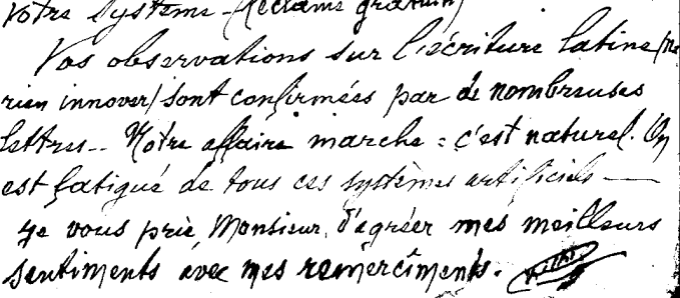 votre système — (réclame gratuit)
Vos observations sur l'écriture latine (ne
rien innover) sont confirmées par de nombreuses
lettres -- Notre affaire marche = c'est naturel. On
est fatigué de tous ces systèmes artificiels —
Je vous prie Monsieur, d'agréer mes meilleurs
sentiments avec mes remerciments.